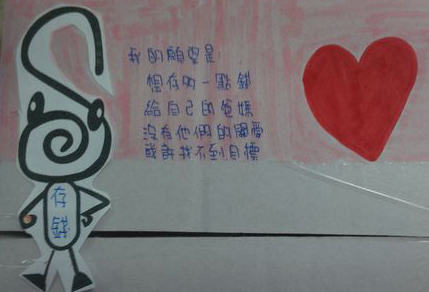 我的願望是
想存內一點錢
給自己的爸媽
沒有他們的關愛
或許找不到目標
存錢